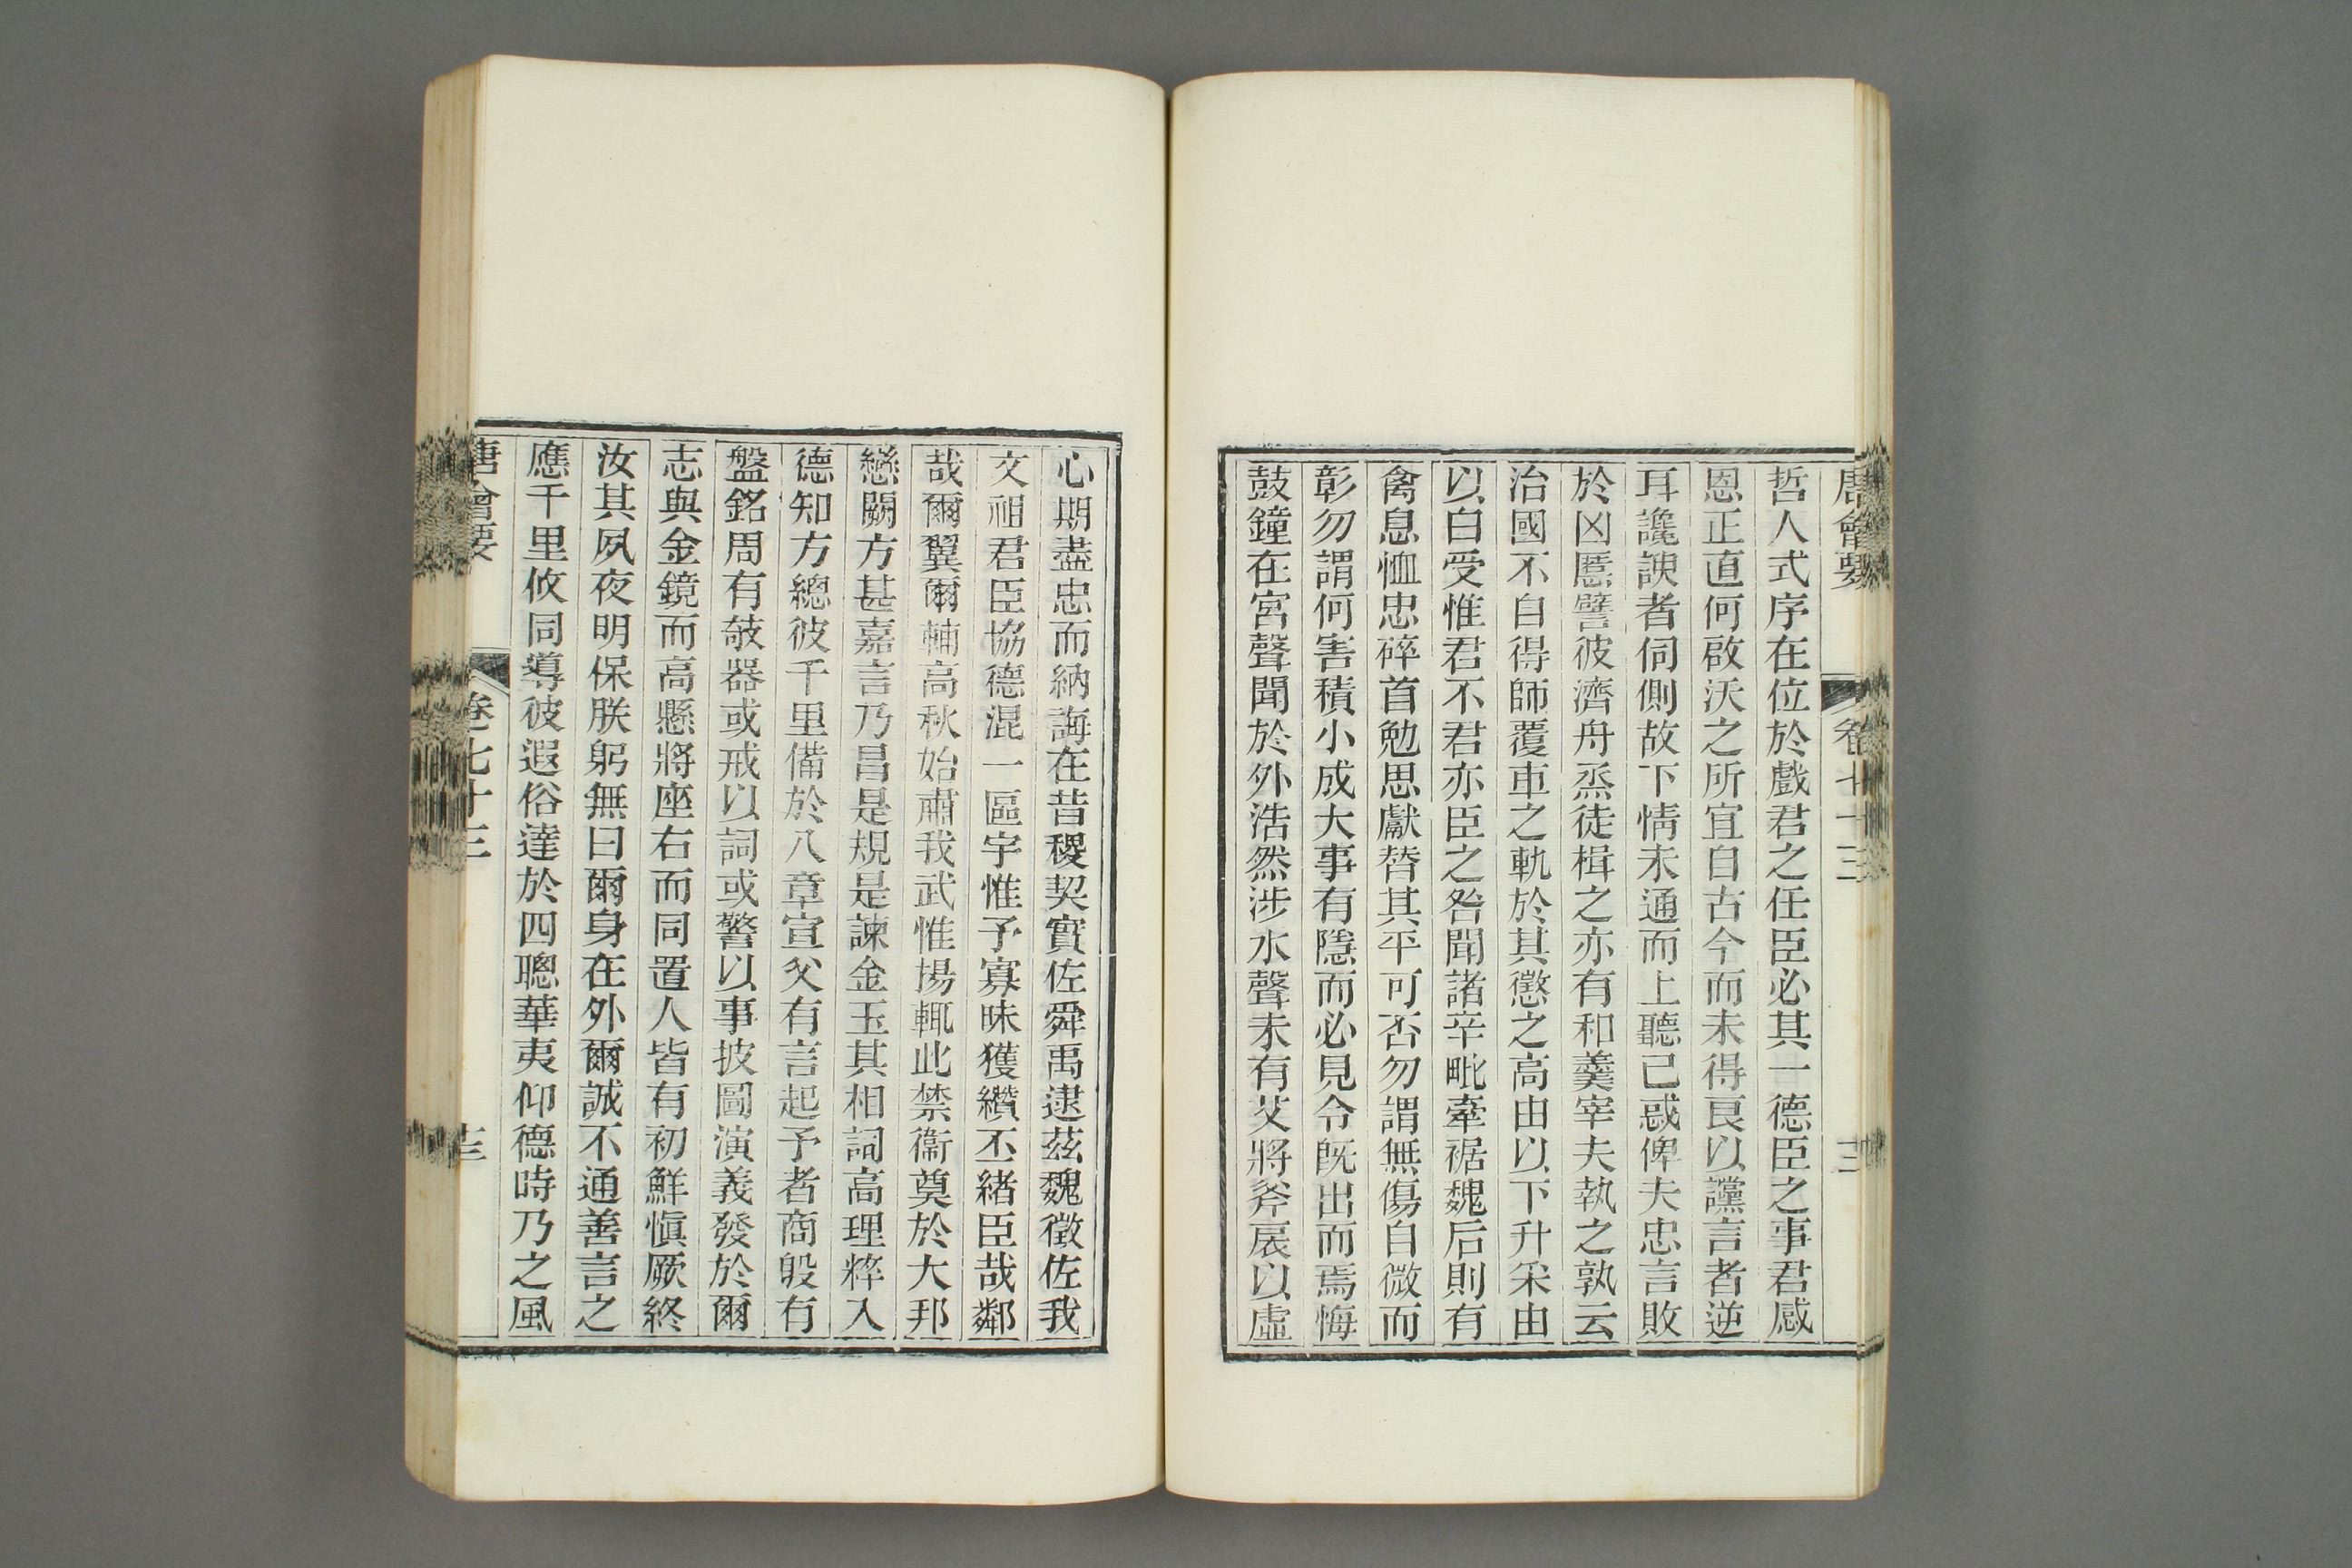 唐會要 卷七十三
哲人式序在位於戲君之任臣必其一德臣之事君感
恩正直何啟沃之所宜自古今而未得良以讜言者逆
耳讒諛者伺側故下情未通而上聽已惑俾夫忠言敗
於凶慝譬彼濟舟烝徒楫之亦有和羹宰夫執之孰云
治國不自得師覆車之軌於其懲之高由以下升采由
以白受惟君不君亦臣之咎聞諸辛毗牽裾魏后則有
禽息恤忠碎首勉思獻替其平可否勿謂無傷自微而
彰勿謂何害積小成大事有隱而必見令旣出而焉悔
鼓鐘在宮聲聞於外浩然涉水聲未有艾將斧扆以虛
心期盡忠而納誨在昔稷契實佐舜禹逮茲魏徵佐我
文祖君臣協德混一區宇惟予寡昧獲纘丕緒臣哉鄰
哉爾翼爾輔高秋始肅我武惟揚輒此禁衞奠於大邦
戀闕方甚嘉言乃昌是規是諫金玉其相詞高理粹入
德知方總彼千里備於八章宣父有言起予者商殷有
盤銘周有欹器或戒以詞或警以事披圖演義發於爾
志與金鏡而高懸將座右而同置人皆有初鮮愼厥終
汝其夙夜明保朕躬無曰爾身在外爾誠不通善言之
應千里攸同導彼遐俗達於四聰華夷仰德時乃之風
唐會要 卷七十三 十三